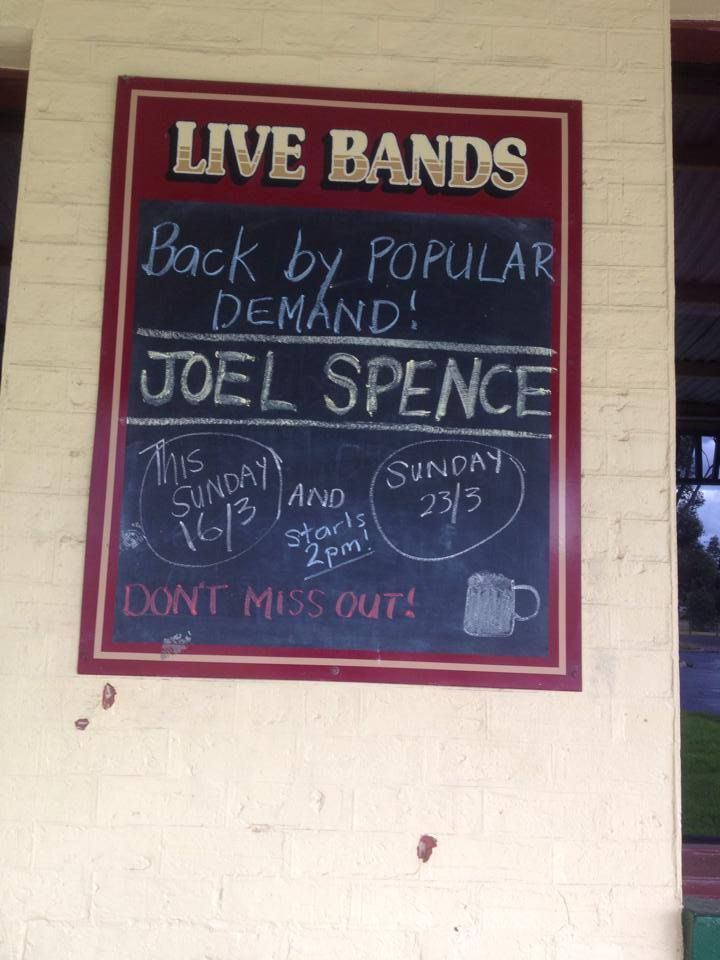 LIVE BANDS
Back by POPULAR
DEMAND!
JOEL SPENCE
THIS
SUNDAY
16/3
AND
starts
2pm!
SUNDAY
23/3
DON'T MISS OUT!